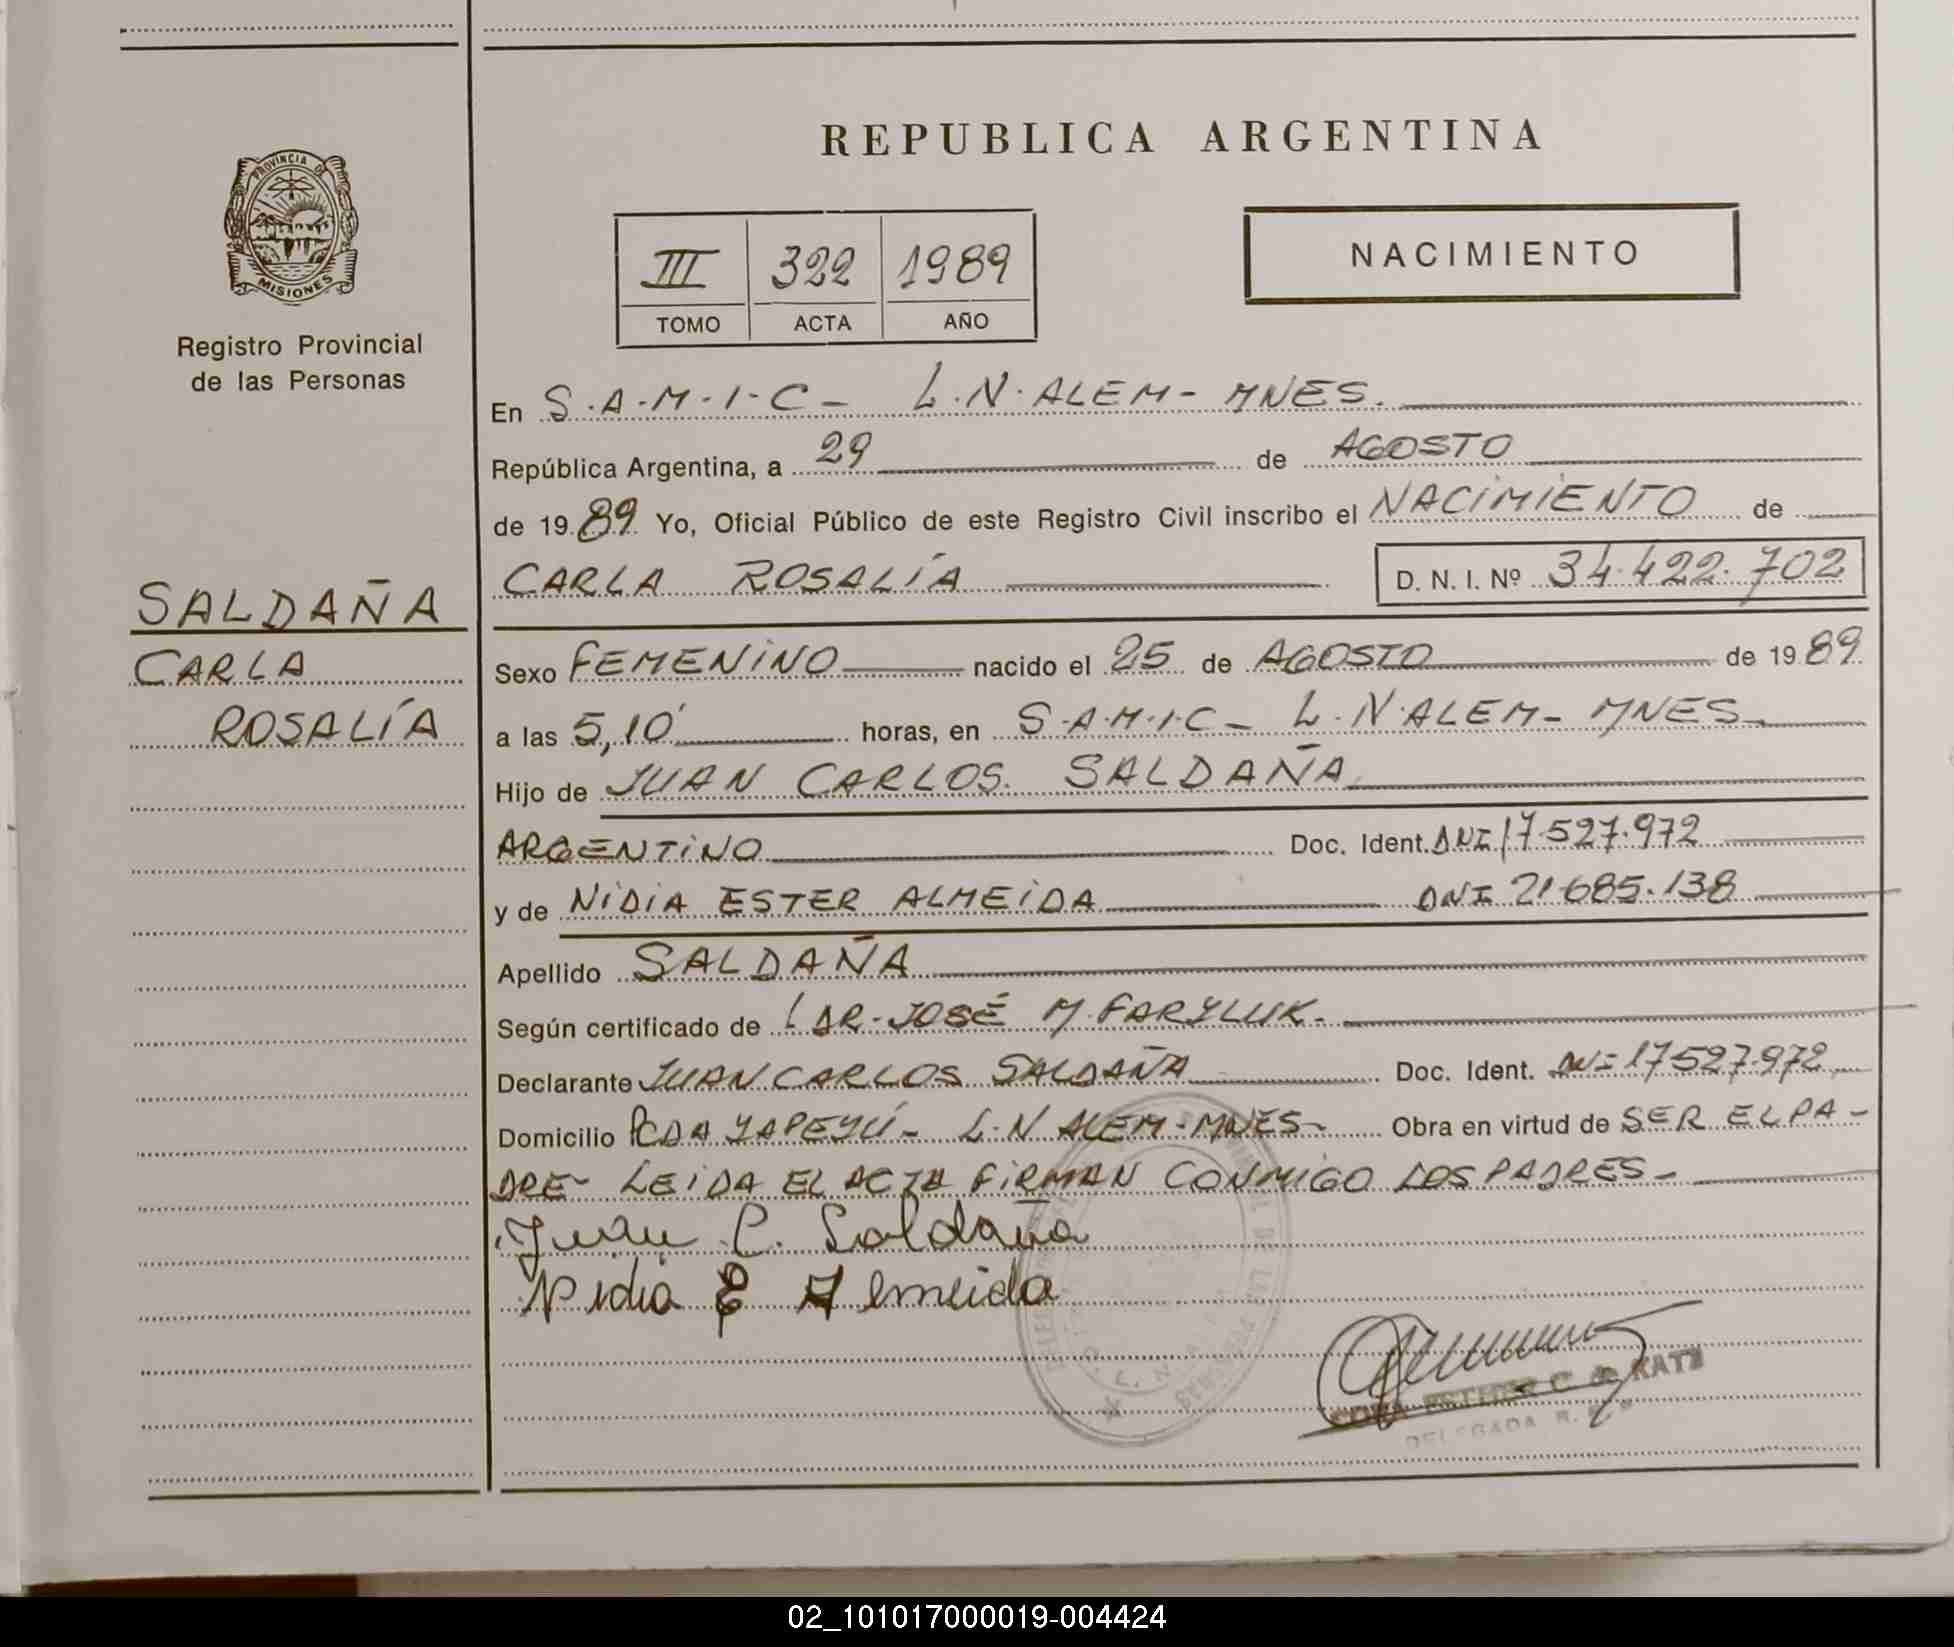 PROVINCIA DE
MISIONES
Registro Provincial
de las Personas
SALDAÑA
CARLA
ROSALÍA
REPUBLICA ARGENTINA
III 322 1989
TOMO ACTA AÑO
NACIMIENTO
En S.A.M.I.C- L.N.ALEM- MNES.
República Argentina, a 29 de AGOSTO
de 1989 Yo, Oficial Público de este Registro Civil inscribo el NACIMIENTO de
CARLA ROSALÍA D. N. I. Nº 34.422.702
Sexo FEMENINO nacido el 25 de AGOSTO de 1989
a las 5,10' horas, en S.A.M.I.C- L.N.ALEM- MNES-
Hijo de JUAN CARLOS SALDAÑA
ARGENTINO Doc. Ident. DNI 17.527.972
y de NIDIA ESTER ALMEIDA DNI 21.685.138
Apellido SALDAÑA
Según certificado de DR. JOSÉ M. FARYLUK.
Declarante JUAN CARLOS SALDAÑA Doc. Ident. DNI 17527.972
Domicilio PCDA YAPEYÚ- L.N ALEM-MNES- Obra en virtud de SER EL PA-
DRE- LEIDA EL ACTA FIRMAN CONMIGO LOS PADRES-
Juan C. Saldaña
Nidia E Almeida
C. de KATZ
DELEGADA R.
02_101017000019-004424